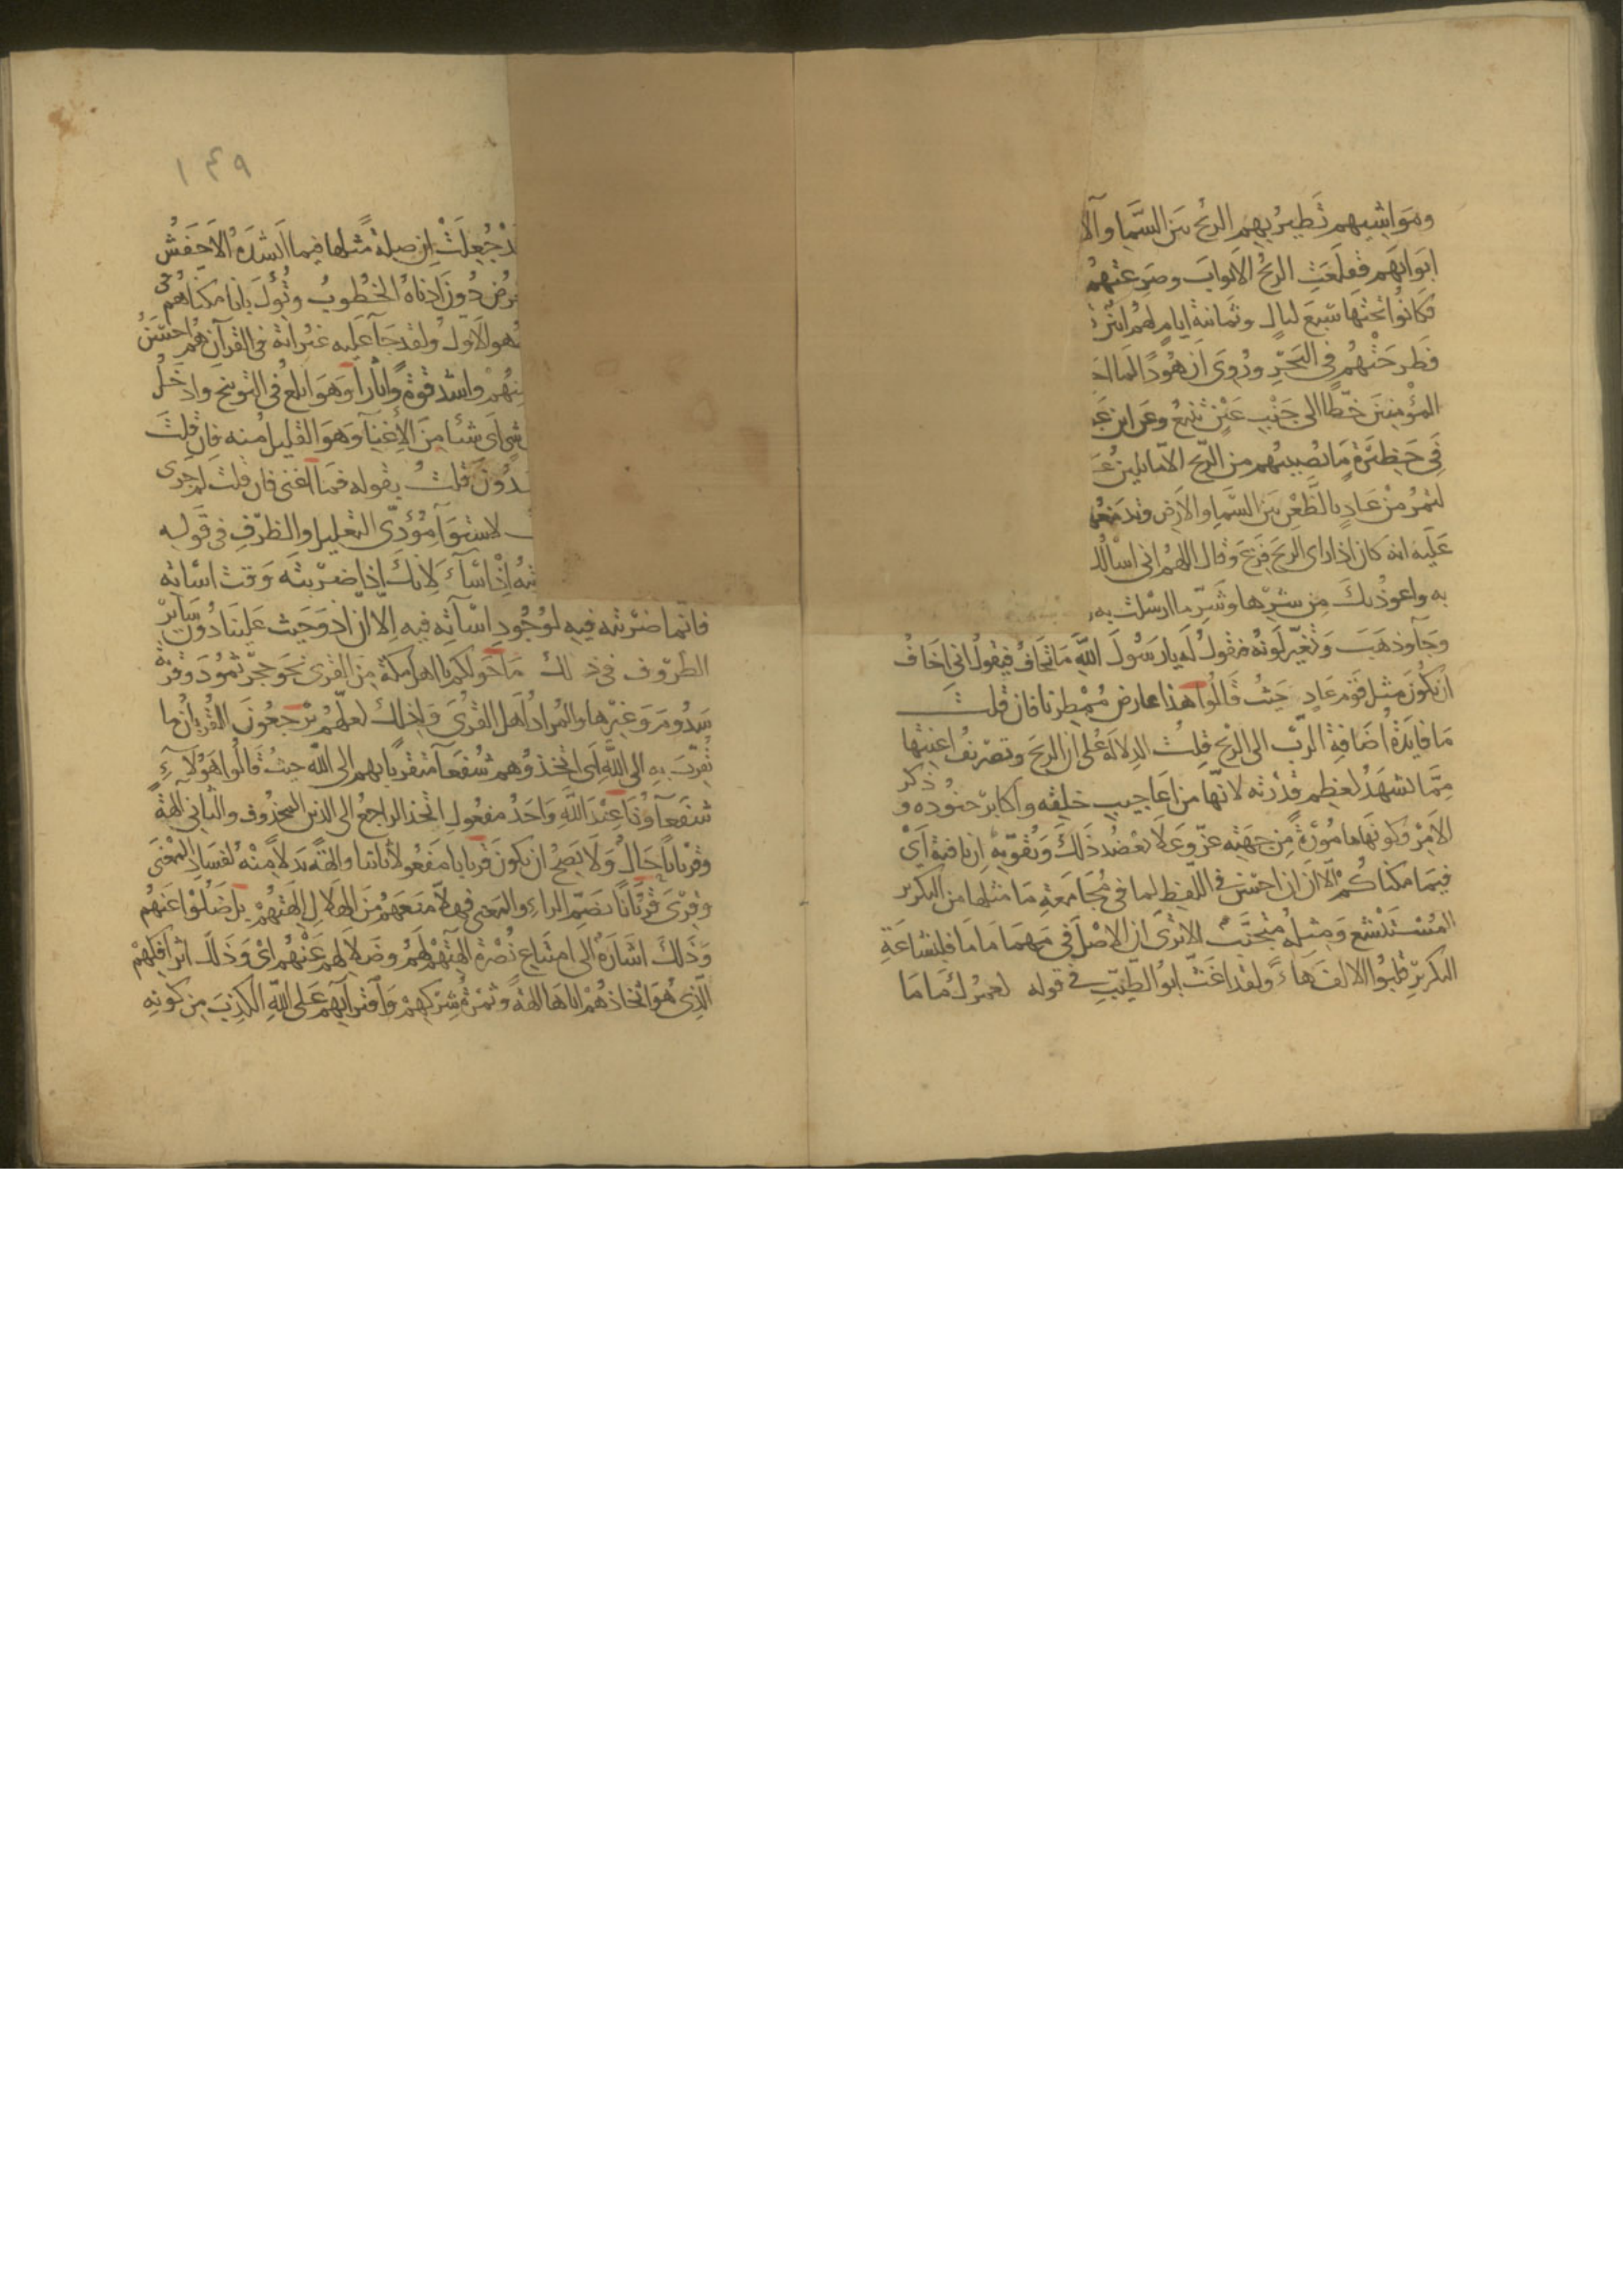 ومواشيهم تطير بهم الريح بين السما والا
ابوابهم فقلعت الريح الابواب وصرعتهم
فكانوا تحتها سبع ليال وثمانية ايام لهم انين
فطرحتهم في البحر وروى ان هودا لما ا
المؤمنين خطا الى جنب عين تنبع وعن ابن عب
في حظيرة ما يصيبهم من الريح الا ما يلين ع
لتمر من عاد بالظعن بين السما والارض وتدمغهم
عليه انه كان اذا راى الريح فزع وقال اللهم اني اسالك
به واعوذ بك من شرها وشر ما ارسلت به
وجا وذهب وتغير لونه فنقول له يا رسول الله ما تخاف فيقول اني اخاف
ان يكون مثل قوم عاد حيث قالوا هذا عارض ممطرنا فان قلت
ما فايدة اضافة الرب الى الريح قلت الدلالة على ان الريح وتصريف اعنتها
مما تشهد لعظم قدرته لانها من اعاجيب خلقه واكابر جنوده و ذكر
الامر وكونها مامورة من جهته عز وعلا يعضد ذلك ويقويه ان نافية اي
فيما مكناكم الا ان ان احسن في اللفظ لما في مجامعة ما مثلها من التكرير
المستبشع ومثله متجنب الا ترى ان الاصل في مهما ما ما فلبشاعة
التكرير قلبوا الالف هاء ولقد اغث ابو الطيب في قوله لعمرك ما ما
١٤٩
جعلت ان صلة مثلها فيما انشده الاخفش
دون ادناه الخطوب وتؤل بانا مكناهم في
هو الاول ولقد جا عليه غير اية في القرآن هم احسن
منهم واشد قوة واثارا وهو ابلغ في التوبيخ وادخل
شي اى شئا من الاغنا وهو القليل منه فان قلت
قلت بقوله فما اغنى فان قلت لم جرى
لاستوا مؤدى التعليل والظرف في قوله
اذ اسآء لانك اذا ضربته وقت اسائه
فانما ضربته فيه لوجود اساته فيه الا ان اذ وحيث غلبتا دون ساير
الظروف في ذلك ما حولكم يا اهل مكة من القرى نحو حجر ثمود وقرية
سدوم وغيرها والمراد اهل القرى ولذلك لعلهم يرجعون القربان ما
تقرب به الى الله اى اتخذوهم شفعآ متقربا بهم الى الله حيث قالوا هؤلآء
شفعآؤنا عند الله واحد مفعولي اتخذ الراجع الى الذين المحذوف والثاني آلهة
وقربانا حال ولا يصح ان يكون قربانا مفعولا ثانيا والهة بدلا منه لفساد المعنى
وقرئ قربانا بضم الراء والمعنى فهلا منعهم من الهلاك الهتهم بل ضلوا عنهم
وذلك اشارة الى امتناع نصرة الهتهم لهم وضلالهم عنهم اى وذلك اثر افكهم
الذي هو اتخاذهم اياها الهة وثمرة شركهم وافترآيهم على الله الكذب من كونه